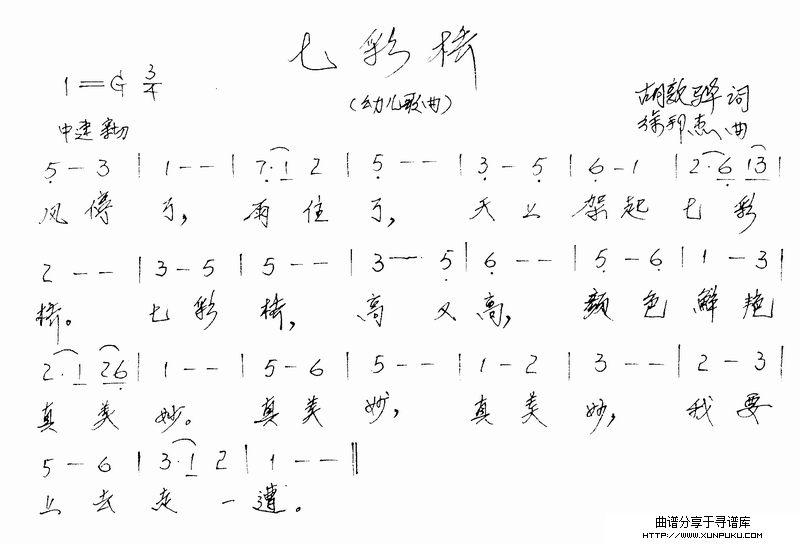 七彩桥
1=G 3/4
(幼儿歌曲)
胡敦骅 词
徐邦杰 曲
中速
5 - 3 | 1 - - | 7·1 2 | 5 - - | 3 - 5 | 6 - 1 | 2·6 13 |
风停了，雨住了，天上架起七彩
2 - - | 3 - 5 | 5 - - | 3 - 5 | 6 - - | 5 - 6 | 1 - 3 |
桥。七彩桥，高又高，颜色鲜艳
2·1 26 | 1 - - | 5 - 6 | 5 - - | 1 - 2 | 3 - - | 2 - 3 |
真美妙。真美妙，真美妙，我要
5 - 6 | 3·1 2 | 1 - - ‖
上去走一遭。
曲谱分享于寻谱库
HTTP://WWW.XUNPUKU.COM